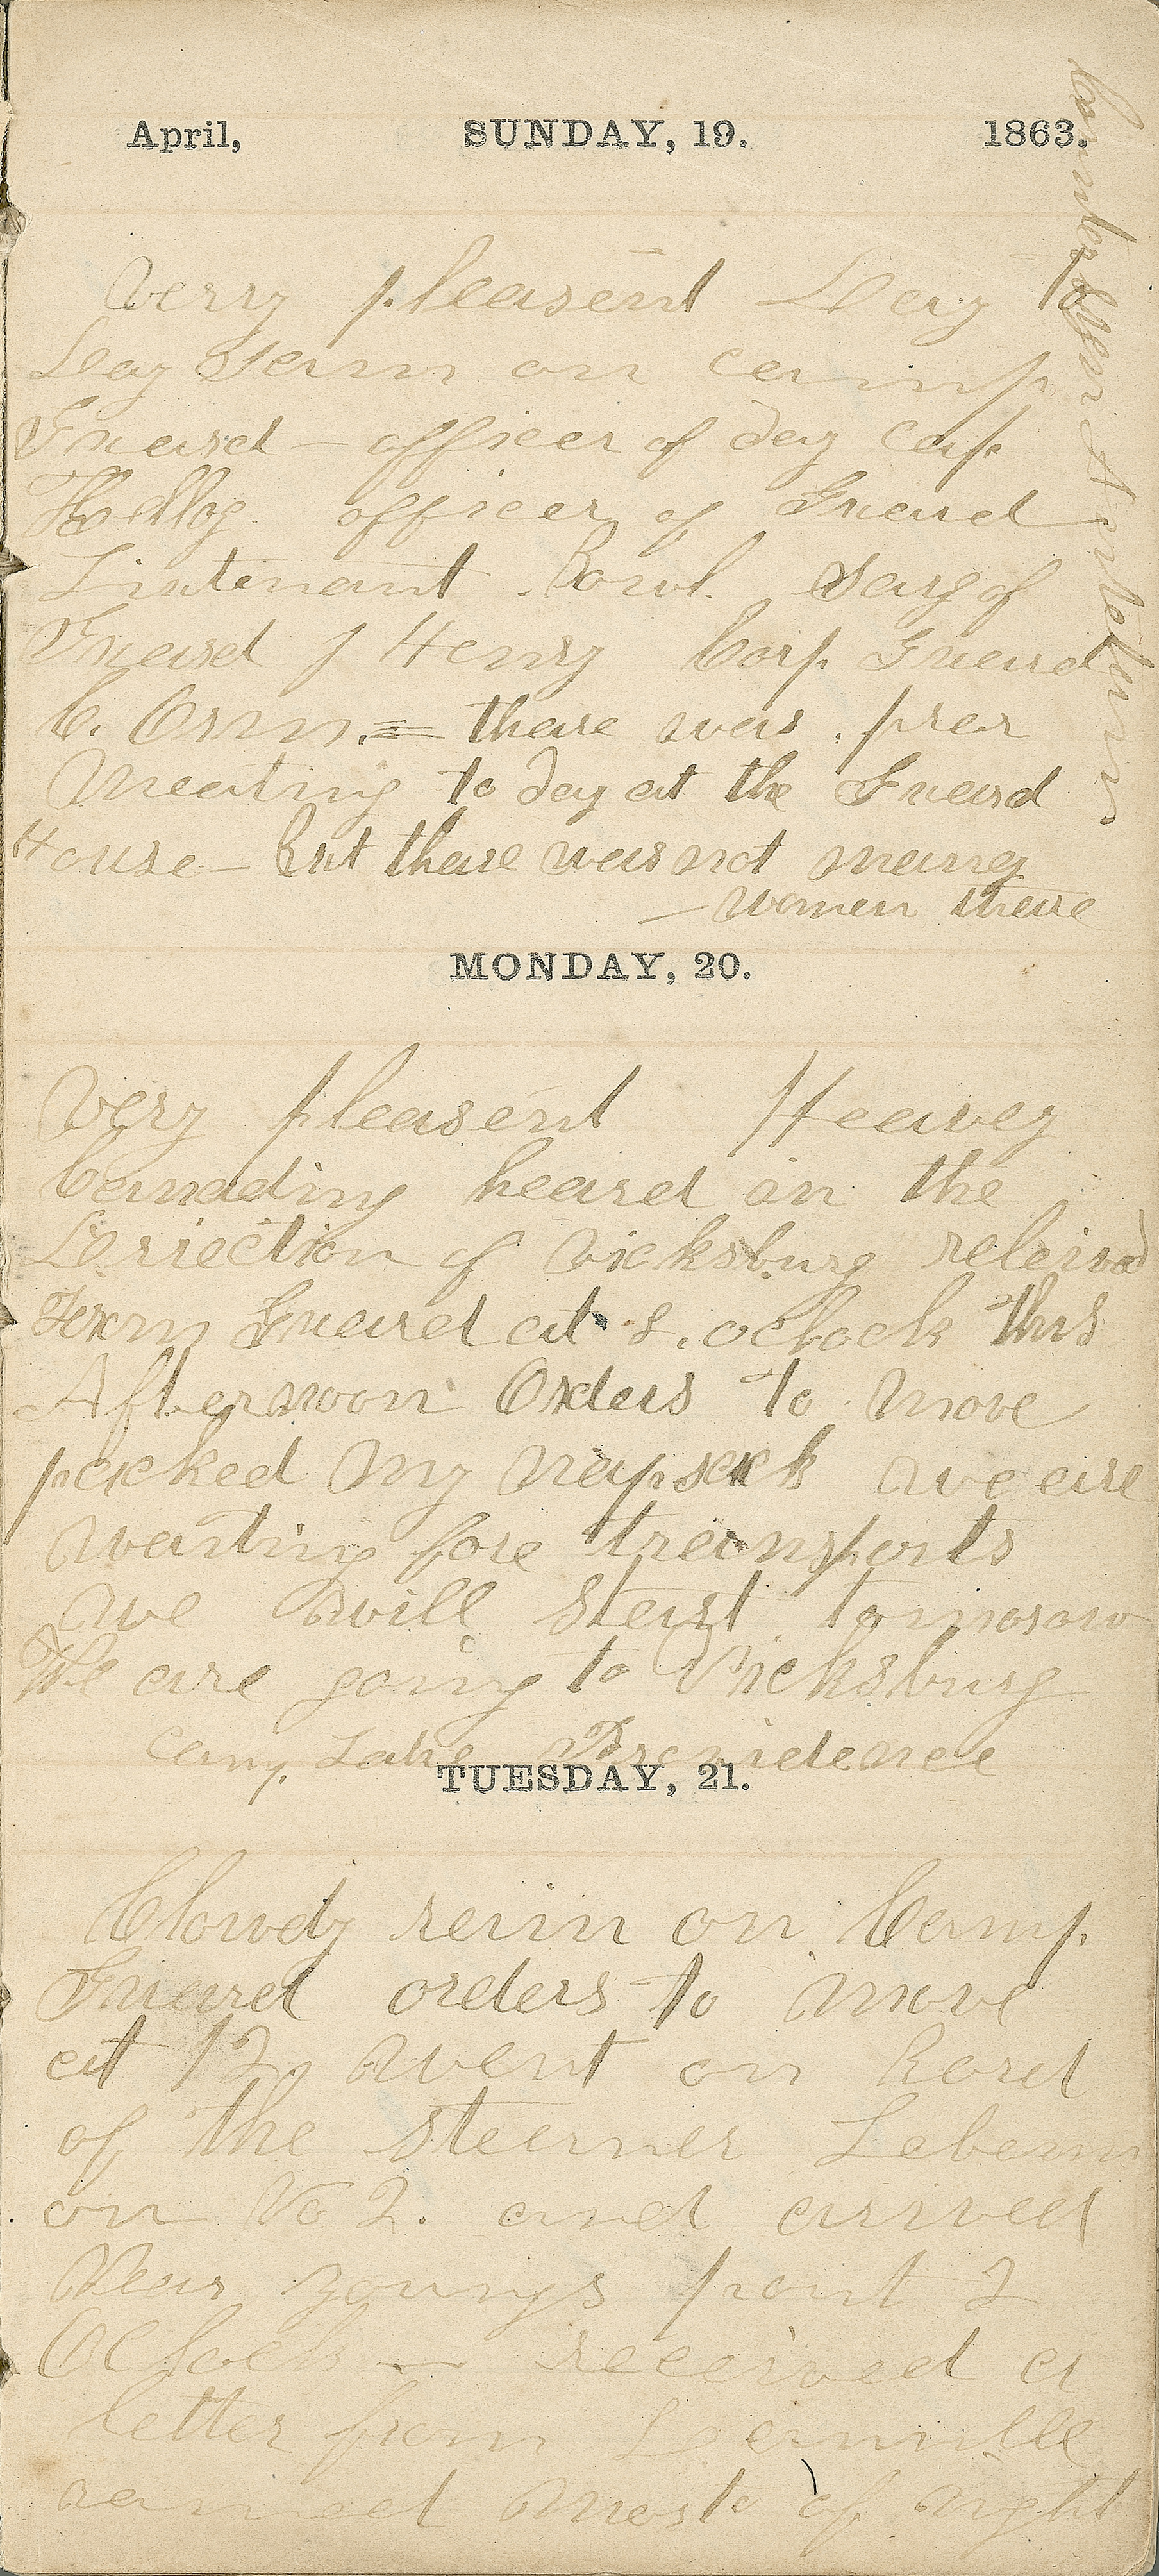 April, SUNDAY, 19. 1863.
Verry pleasent Day to
Day I am on camp
Guard — officer of day Cap
Kellog officer of Guard
Lintenant Rowl. Sarg of
Guard J Henry Corp Guard
C. Orrn = thare was prer
Meating to day at the Guard
House — but thare was not many
— women thare
MONDAY, 20.
Very pleasent Heavey
Canading heard in the
Diriection of Vicksburg releived
From Guard at 8. oclock this
Afternoon Orders to move
packed my napsack we are
wanting fore transports
we will start tomorow
We are going to Vicksburg
Camp Lake Providence
TUESDAY, 21.
Clowdy rain on Camp
Guard orders to move
at 12 went on Bord
of the steamer Lebenn
on No 2. and arived
Near youngs point 2
Oclock — received a
letter from Lennille
rained most of night